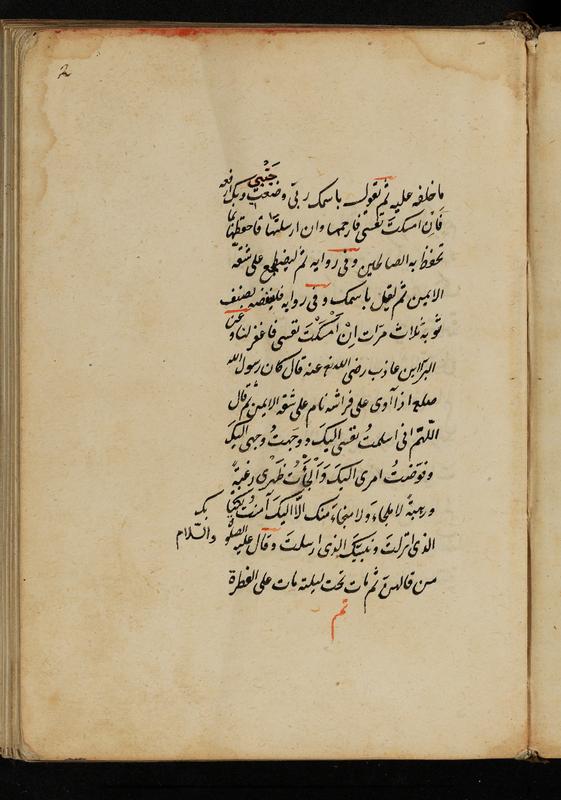 2
ما خلفه عليه ثم تقول باسمك ربي وضعت جنبي وبك ارفعه
فان امسكت نفسي فارحمها وان ارسلتها فاحفظها بما
تحفظ به الصالحين وفي رواية ثم ليضطجع على شقه
الايمن ثم ليقل باسمك وفي رواية فلينفضه بصنف
ثوبه ثلاث مرات ان امسكت نفسي فاغفر لنا وعن
البرآ ابن عاذب رضى الله تع عنه قال كان رسول الله
صلعم اذا آوى على فراشه نام على شقه الايمن ثم قال
اللهم انى اسلمت نفسى اليك ووجهت وجهى اليك
وفوضت امرى اليك والجأت ظهرى رغبة
ورهبة لا ملجاء ولا منجاء منك الا اليك آمنت بكتابك
الذى انزلت ونبيك الذى ارسلت وقال عليه الصلوة والسلام
من قالهن ثم مات تحت ليلته مات على الفطرة
تم